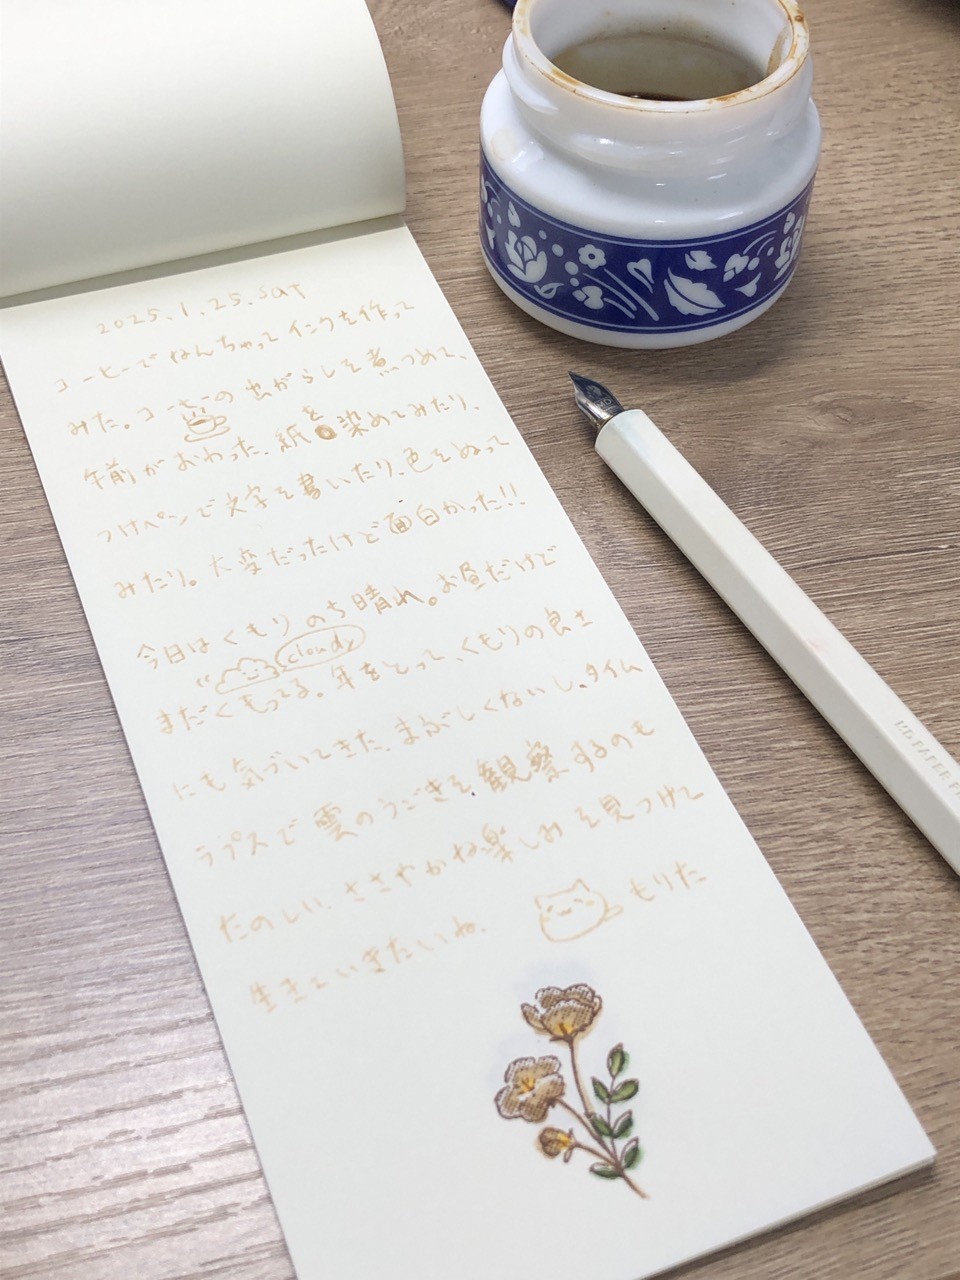 2025.1.25.sat
コーヒーでなんちゃってインクを作って
みた。コーヒーの出がらしを煮つめて、
午前がおわった。紙を染めてみたり、
つけペンで文字を書いたり、色をぬって
みたり。大変だったけど面白かった!!
今日はくもりのち晴れ。お昼だけど
cloudy
まだくもってる。年をとって、くもりの良さ
にも気づいてきた。まぶしくないし、タイム
ラプスで雲のうごきを観察するのも
たのしい。ささやかな楽しみを見つけて
生きていきたいね。 もりた
MD PAPER PR